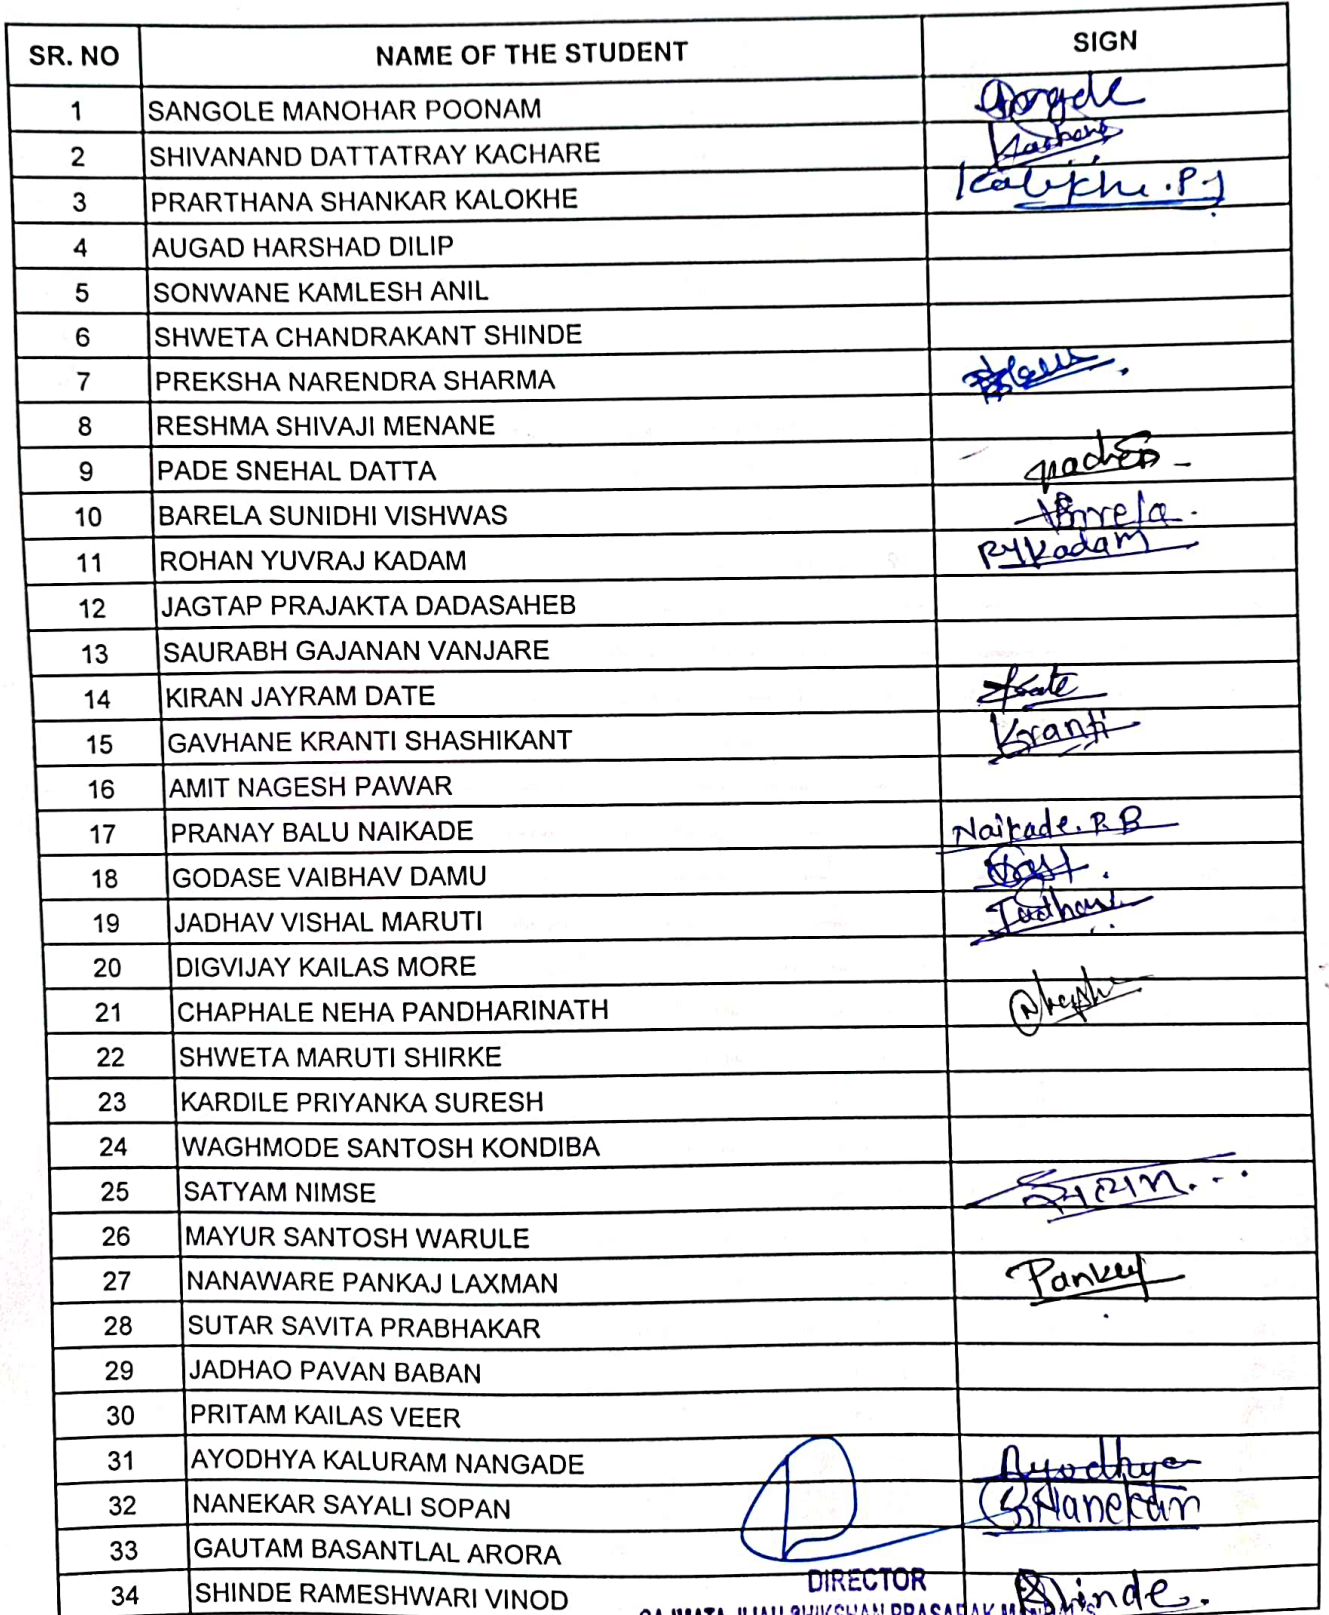 SR. NO NAME OF THE STUDENT SIGN
1 SANGOLE MANOHAR POONAM
2 SHIVANAND DATTATRAY KACHARE
3 PRARTHANA SHANKAR KALOKHE
4 AUGAD HARSHAD DILIP
5 SONWANE KAMLESH ANIL
6 SHWETA CHANDRAKANT SHINDE
7 PREKSHA NARENDRA SHARMA
8 RESHMA SHIVAJI MENANE
9 PADE SNEHAL DATTA
10 BARELA SUNIDHI VISHWAS Barela.
11 ROHAN YUVRAJ KADAM RYKadam
12 JAGTAP PRAJAKTA DADASAHEB
13 SAURABH GAJANAN VANJARE
14 KIRAN JAYRAM DATE
15 GAVHANE KRANTI SHASHIKANT Kranti
16 AMIT NAGESH PAWAR
17 PRANAY BALU NAIKADE Naikade. P. B
18 GODASE VAIBHAV DAMU
19 JADHAV VISHAL MARUTI Jadhav
20 DIGVIJAY KAILAS MORE
21 CHAPHALE NEHA PANDHARINATH
22 SHWETA MARUTI SHIRKE
23 KARDILE PRIYANKA SURESH
24 WAGHMODE SANTOSH KONDIBA
25 SATYAM NIMSE सत्यम...
26 MAYUR SANTOSH WARULE
27 NANAWARE PANKAJ LAXMAN Pankaj
28 SUTAR SAVITA PRABHAKAR
29 JADHAO PAVAN BABAN
30 PRITAM KAILAS VEER
31 AYODHYA KALURAM NANGADE Ayodhya
32 NANEKAR SAYALI SOPAN SNanekar
33 GAUTAM BASANTLAL ARORA
34 SHINDE RAMESHWARI VINOD RShinde.
DIRECTOR